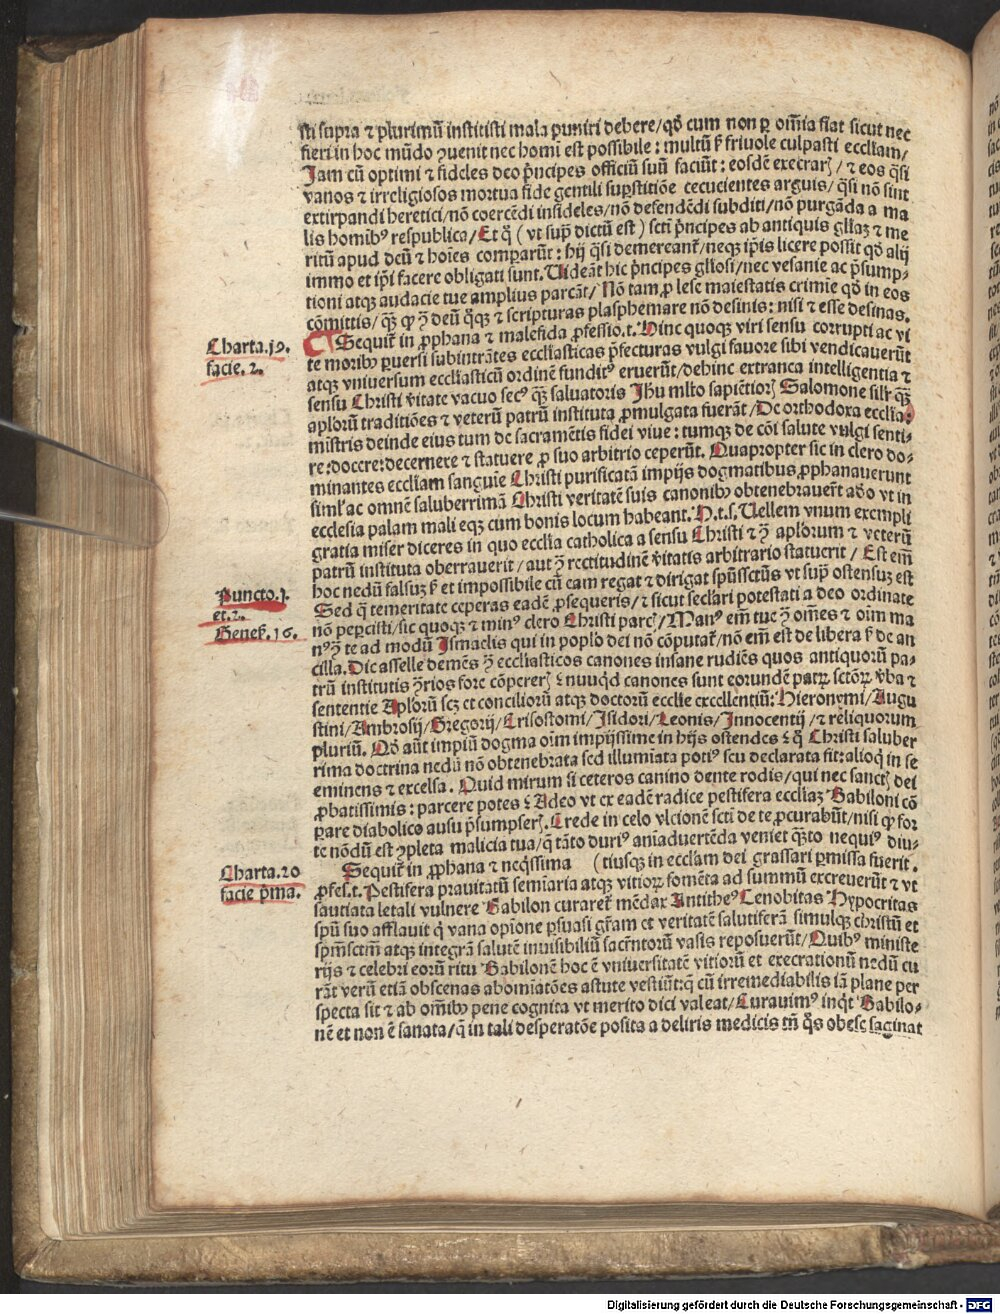 sti supra ⁊ plurimū institisti mala puniri debere/qḋ cum non ꝑ oīnia fiat sicut nec
fieri in hoc mūdo ꝯuenit nec homi est possibile : multū ẜ friuole culpasti eccl'iam/
Jam cū optimi ⁊ fideles deo pͥncipes officiū suū faciūt : eosdē execrarꝭ/⁊ eos q̄si
vanos ⁊ irreligiosos mortua fide gentili suꝑstitiōe cecucientes arguis/q̄si nō sint
extirpandi heretici/nō coercēdi infideles/nō defendēdi subditi/nō purgāda a ma
lis homibꝰ respublica/Et q̄ ( vt supͣ dictū est ) scti pͥncipes ab antiquis gl'iaꝫ ⁊ me
ritū apud deū ⁊ hoīes comparūt : hij q̄si demereant̄/neqꝫ ip̄is licere possit qḋ alij
immo et ip̄i facere obligati sunt. Uideāt hic pͥncipes gl'iosi/nec vesanie ac p̄sump⸗
tioni atqꝫ audacie tue amplius parcāt/Nō tam ꝓ lese maiestatis crimīe qḋ in eos
cōmittis/q̄ꝫ ꝙ ꝯͣ deū q̊ꝫ ⁊ scripturas plasphemare nō desinis: nisi ⁊ esse desinas.
Charta.19.
facie. 2.
Sequit̄ in ꝓphana ⁊ malefida ꝓfessio.t. Hinc quoqꝫ viri sensu corrupti ac vi
te moribꝰ ꝑuersi subintrātes eccl'iasticas p̄fecturas vulgi fauore sibi vendicauerūt
atqꝫ vniuersum ecclīasticū ordinē funditꝰ eruerūt/dehinc extranea intelligentia ⁊
sensu Christi v̓itate vacuo secꝰ q̄ꝫ saluatoris Jhu ml'to sapiētiorꝭ Salomone sil'r q̄ꝫ
apl'orū traditiōes ⁊ veterū patrū instituta ꝓmulgata fuerāt/De orthodoxa eccl'ia:
mīstris deinde eius tum de sacramētis fidei viue : tumqꝫ de cōi salute vulgi senti⸗
re:docere:decernere ⁊ statuere ꝓ suo arbitrio ceperūt. Quapropter sic in clero do⸗
minantes eccl'iam sanguīe Christi purificatā impijs dogmatibus ꝓphanauerunt
siml'ac omnē saluberrimā Christi veritatē suis canonibꝰ obtenebrauer̄t adeo vt in
ecclesia palam mali eqꝫ cum bonis locum habeant. H.t.s. Uellem vnum exempli
gratia miser diceres in quo eccl'ia catholica a sensu Christi ⁊ ꝯͣ apl'orum ⁊ veterū
patrū instituta oberrauerit/aut ꝯͣ rectitudinē v̓itatis arbitrario statuerit/Est em̄
hoc nedū falsuꝫ ẜ et impossibile cū eam regat ⁊ dirigat spūssctūs vt supͣ ostensuꝫ est
Puncto.1.
et.2.
Genes.16.
Sed q̄ temeritate ceperas eadē ꝓsequeris/⁊ sicut secl'ari potestati a deo ordinate
nō peꝑcisti/sic quoqꝫ ⁊ minꝰ clero Christi parcꝭ/Manꝰ em̄ tue ꝯͣ om̄es ⁊ oim̄ ma
nꝰ ꝯͣ te ad modū Jsmaelis qui in popl'o dei nō cōputat̄/nō em̄ est de libera ẜ de an
cilla. Dic aselle demēs ꝯͣ eccl'iasticos canones insane rudiēs quos antiquorū pa⸗
trū institutis ꝯͣrios fore cōpererꝭ ⁊ nuuqd canones sunt eorundē patrꝝ sctōꝝ v̓ba ⁊
sententie Apl'orū scꝫ et conciliorū atqꝫ doctorū ecclie excellentiū: Hieronymi/Augu
stini/Ambrosij/Gregorij/Crisostomi/Jsidori/Leonis/Jnnocentij/⁊ reliquorum
pluriū. Qḋ aūt impiū dogma oim̄ impijssime in hijs ostendes ⁊ q̄ Christi saluber
rima doctrina nedū nō obtenebrata sed illumīata potiꝰ seu declarata sit: alioqͥ in se
eminens ⁊ excelsa. Quid mirum si ceteros canino dente rodis/qui nec sanctꝭ dei
ꝓbatissimis : parcere potes ⁊ Adeo vt ex eadē radice pestifera eccl'iaꝫ Babiloni cō
ꝑare diabolico ausu p̄sumpserꝭ. Crede in celo vlcionē scti de te ꝓcurabūt/nisi ꝙ for
te nōdū est ꝯpleta malicia tua/q̄ tāto duriꝰ anīaduertēda veniet q̄ꝫto nequiꝰ diu⸗
Charta.20
facie pͥma.
Sequit̄ in ꝓphana ⁊ neqͥssima (tiusqꝫ in eccl'am dei grassari ꝑmissa fuerit.
ꝓfes.t. Pestifera prauitatū semīaria atqꝫ vitioꝝ fomēta ad summū excreuerūt ⁊ vt
sautiata letali vulnere Babilon curaret̄ mēdax Antitheꝰ Cenobitas Hypocritas
spū suo afflauit q̄ vana opīone ꝑsuasi gr̄am et veritatē salutiferā simulqꝫ christū et
spm̄sctm̄ atqꝫ integrā salutē inuisibiliū sacr̄ntorū vasis reposuerūt/Quibꝰ ministe
rijs ⁊ celebri eorū ritu Babilonē hoc ē vniuersitatē vitiorū et execrationū nedū cu
rāt verū etiā obscenas abomīatōes astute vestiūt: q̄ cū irremediabilis iā plane per
specta sit ⁊ ab om̄ibꝰ pene cognita vt merito dici valeat/Curauimꝰ inqͥt Babilo⸗
nē et non ē sanata/q̄ in tali desperatōe posita a deliris medicis tm̄ q̊s obesꝫ saginat
Digitalisierung gefördert durch die Deutsche Forschungsgemeinschaft - DFG